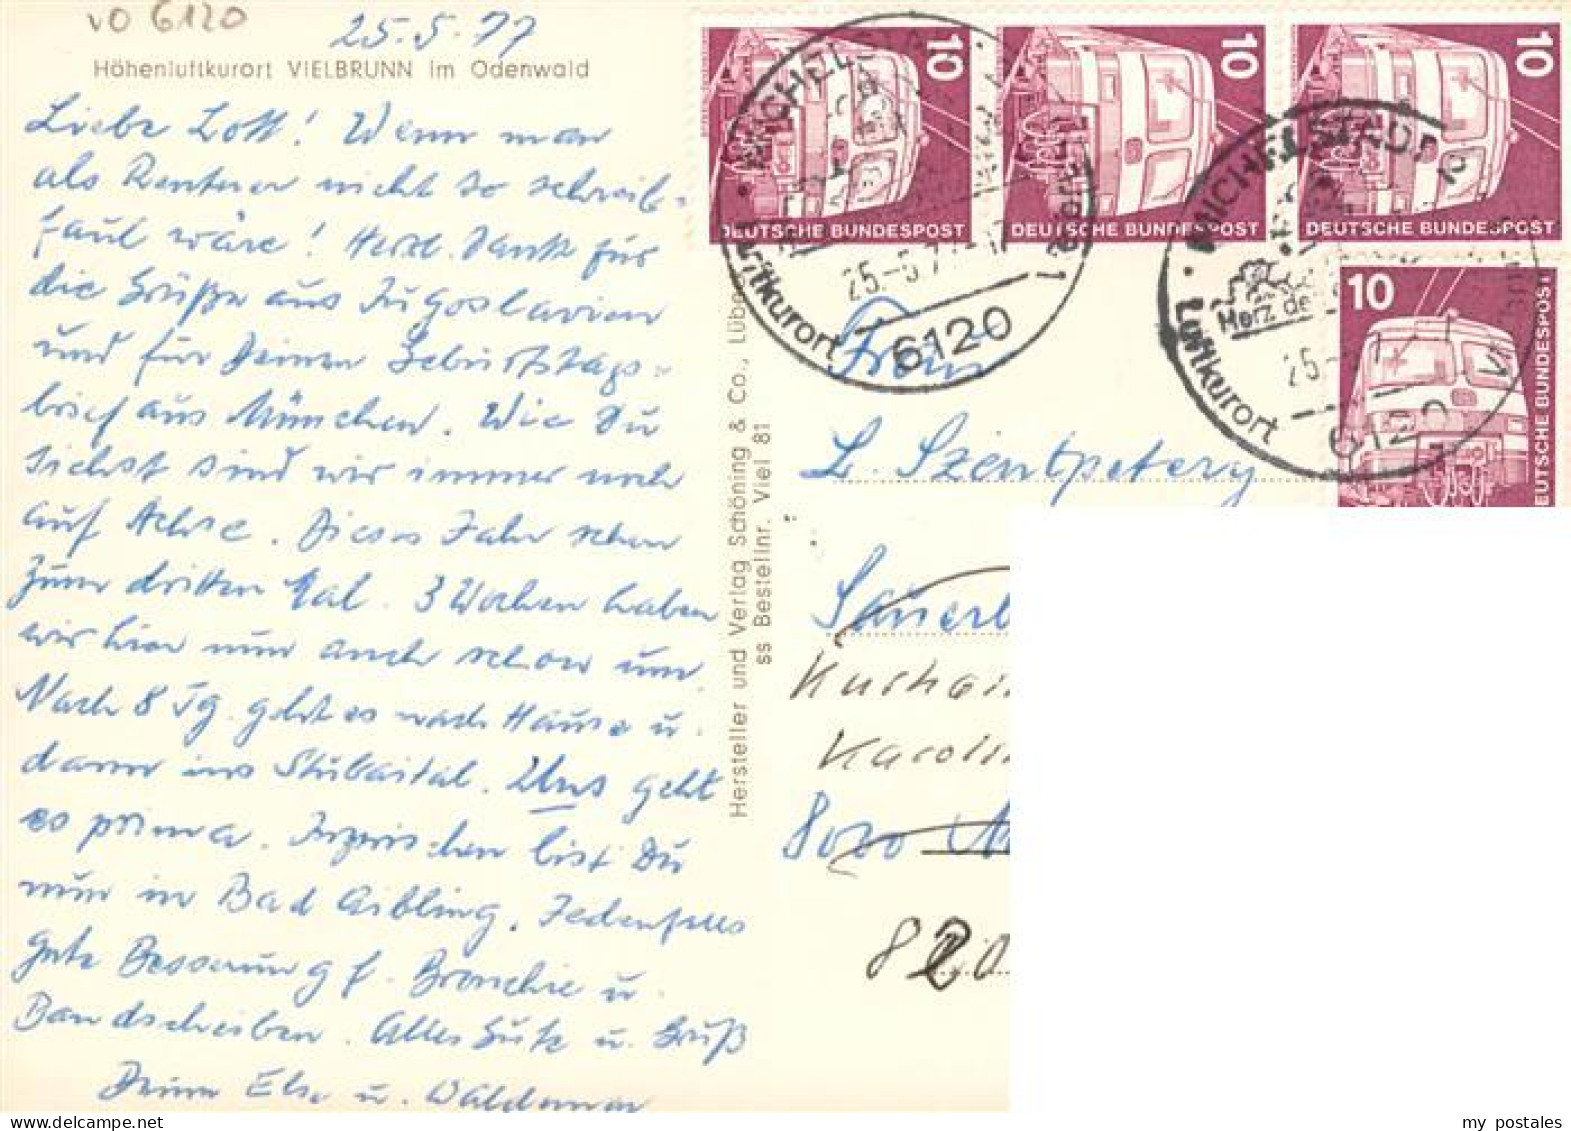 vo 6120
25.5.77
Höhenluftkurort VIELBRUNN im Odenwald
Liebe Lott! Wenn man
als Rentner nicht so schreib-
faul wäre! Herzl. Dank für
die Grüße aus Jugoslavien
und für Deinen Geburtstags-
brief aus München. Wie Du
siehst sind wir immer noch
auf Achse. Dieses Jahr schon
zum dritten Mal. 3 Wochen haben
wir hier nun auch schon um.
Nach 8 Tg. geht es nach Hause u.
dann ins Stubaital. Uns geht
es prima. Inzwischen bist Du
nun in Bad Aibling. Jedenfalls
gute Besserung f. Bronchie u.
Bandscheiben. Alles Gute u. Gruß
Deine Else u. Waldemar
Hersteller und Verlag Schöning & Co., Lübe
ss Bestellnr. Viel 81
10
DEUTSCHE BUNDESPOST
10
DEUTSCHE BUNDESPOST
10
DEUTSCHE BUNDESPOST
10
EUTSCHE BUNDESPOST
MICHELSTADT
Luftkurort
25.-5.77-17
6120
MICHELSTADT 2
Herz de
Luftkurort
25.-
6120
Frau
L. Szentpetery
Sauerb
Kurhei
Karolin
8000 M
820
my postales